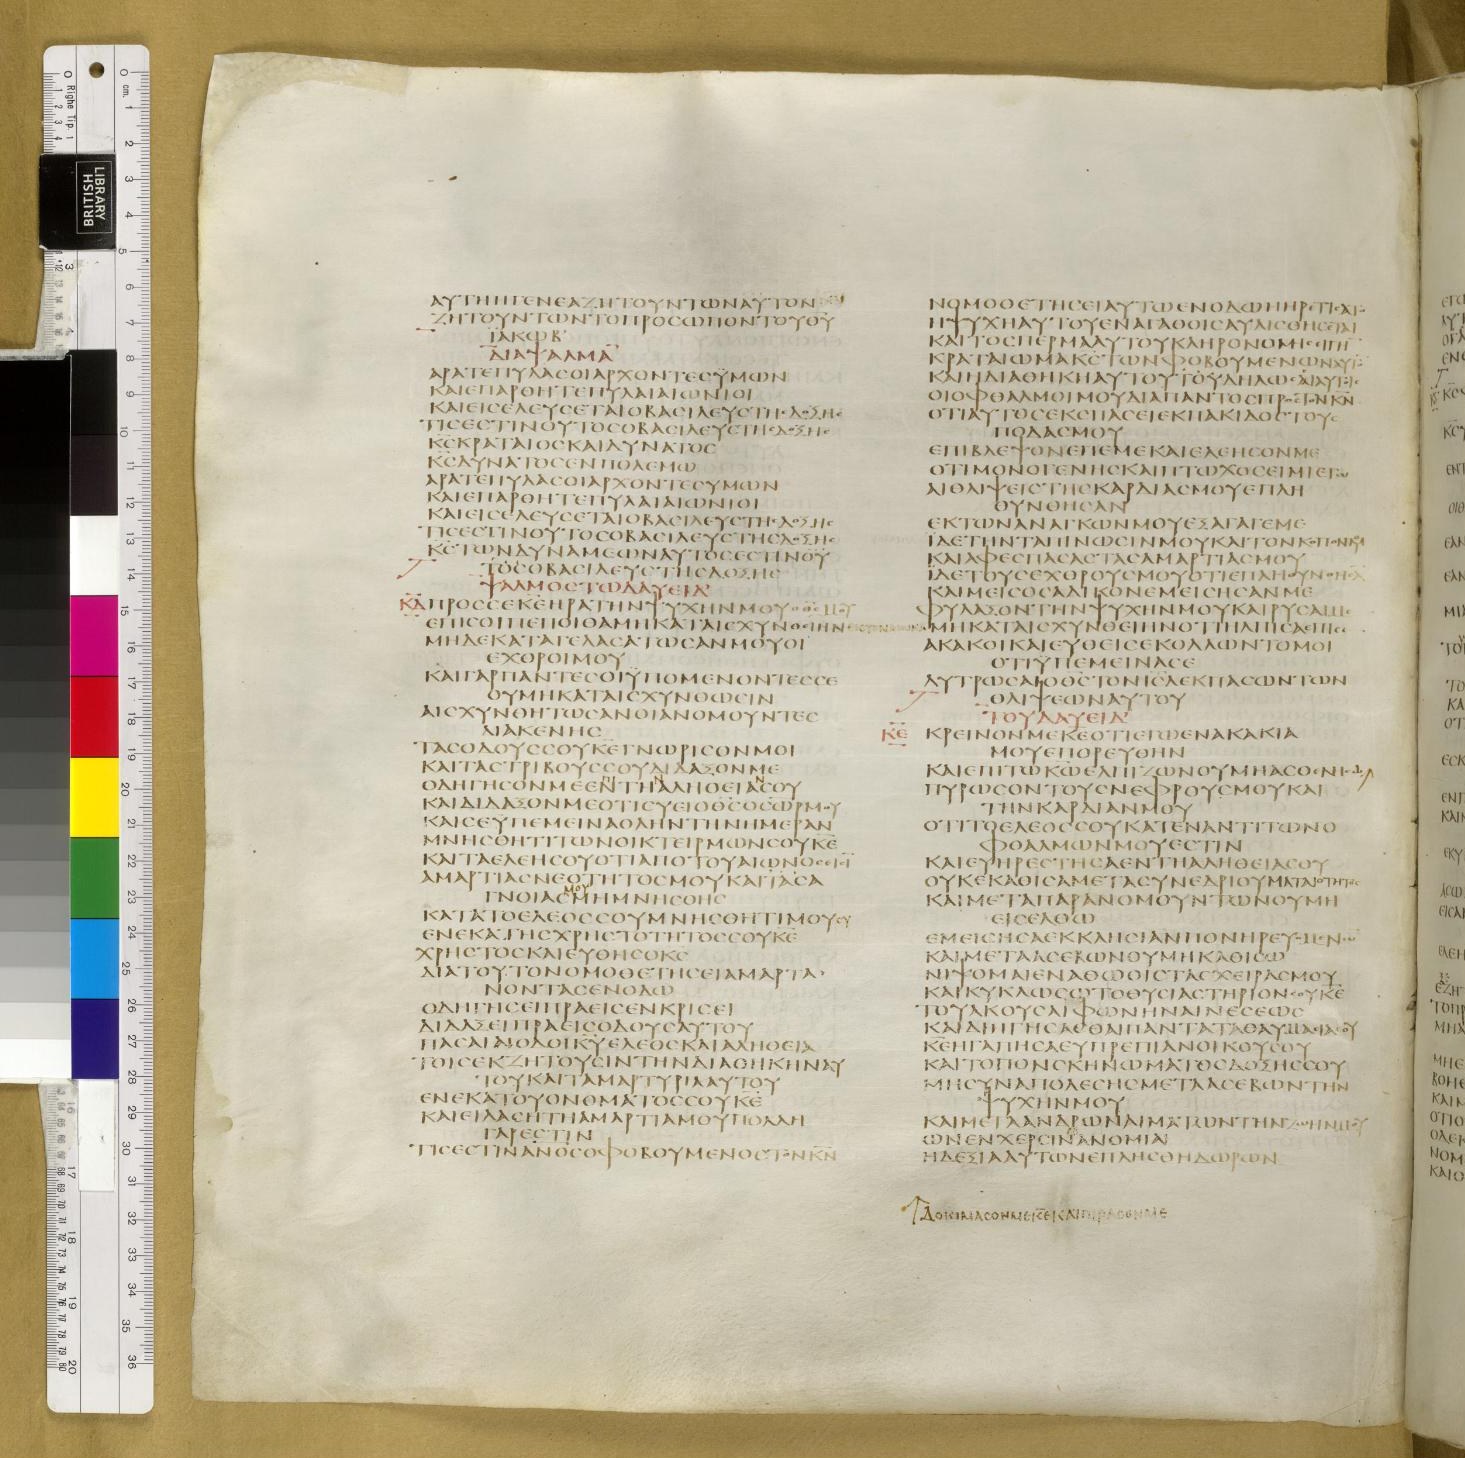 ΑΥΤΗΗΓΕΝΕΑΖΗΤΟΥΝΤΩΝΑΥΤΟΝ
ΖΗΤΟΥΝΤΩΝΤΟΠΡΟΣΩΠΟΝΤΟΥΘΥ
ΙΑΚΩΒ
ΔΙΑΨΑΛΜΑ
ΑΡΑΤΕΠΥΛΑΣΟΙΑΡΧΟΝΤΕΣΥΜΩΝ
ΚΑΙΕΠΑΡΘΗΤΕΠΥΛΑΙΑΙΩΝΙΟΙ
ΚΑΙΕΙΣΕΛΕΥΣΕΤΑΙΟΒΑΣΙΛΕΥΣΤΗΣΔΟΞΗΣ
ΤΙΣΕΣΤΙΝΟΥΤΟΣΟΒΑΣΙΛΕΥΣΤΗΣΔΟΞΗΣ
ΚΣΚΡΑΤΑΙΟΣΚΑΙΔΥΝΑΤΟΣ
ΚΣΔΥΝΑΤΟΣΕΝΠΟΛΕΜΩ
ΑΡΑΤΕΠΥΛΑΣΟΙΑΡΧΟΝΤΕΣΥΜΩΝ
ΚΑΙΕΠΑΡΘΗΤΕΠΥΛΑΙΑΙΩΝΙΟΙ
ΚΑΙΕΙΣΕΛΕΥΣΕΤΑΙΟΒΑΣΙΛΕΥΣΤΗΣΔΟΞΗΣ
ΤΙΣΕΣΤΙΝΟΥΤΟΣΟΒΑΣΙΛΕΥΣΤΗΣΔΟΞΗΣ
ΚΣΤΩΝΔΥΝΑΜΕΩΝΑΥΤΟΣΕΣΤΙΝΟΥ
ΤΟΣΟΒΑΣΙΛΕΥΣΤΗΣΔΟΞΗΣ
ΨΑΛΜΟΣΤΩΔΑΥΕΙΔ
ΚΔ ΠΡΟΣΣΕΚΕΗΡΑΤΗΝΨΥΧΗΝΜΟΥ
ΕΠΙΣΟΙΠΕΠΟΙΘΑΜΗΚΑΤΑΙΣΧΥΝΘΕΙΗΝ
ΜΗΔΕΚΑΤΑΓΕΛΑΣΑΤΩΣΑΝΜΟΥΟΙ
ΕΧΘΡΟΙΜΟΥ
ΚΑΙΓΑΡΠΑΝΤΕΣΟΙΫΠΟΜΕΝΟΝΤΕΣΣΕ
ΟΥΜΗΚΑΤΑΙΣΧΥΝΘΩΣΙΝ
ΑΙΣΧΥΝΘΗΤΩΣΑΝΟΙΑΝΟΜΟΥΝΤΕΣ
ΔΙΑΚΕΝΗΣ
ΤΑΣΟΔΟΥΣΣΟΥΚΕΓΝΩΡΙΣΟΝΜΟΙ
ΚΑΙΤΑΣΤΡΙΒΟΥΣΣΟΥΔΙΔΑΞΟΝΜΕ
ΟΔΗΓΗΣΟΝΜΕΕΝΤΗΑΛΗΘΕΙΑΣΟΥ
ΚΑΙΔΙΔΑΞΟΝΜΕΟΤΙΣΥΕΙΟΘΣΟΣΩΡΜΟΥ
ΚΑΙΣΕΥΠΕΜΕΙΝΑΟΛΗΝΤΗΝΗΜΕΡΑΝ
ΜΝΗΣΘΗΤΙΤΩΝΟΙΚΤΕΙΡΜΩΝΣΟΥΚΕ
ΚΑΙΤΑΕΛΕΗΣΟΥΟΤΙΑΠΟΤΟΥΑΙΩΝΟΣ
ΑΜΑΡΤΙΑΣΝΕΟΤΗΤΟΣΜΟΥΚΑΙΑΣΑ
ΓΝΟΙΑΣΜΟΥΜΗΜΝΗΣΘΗΣ
ΚΑΤΑΤΟΕΛΕΟΣΣΟΥΜΝΗΣΘΗΤΙΜΟΥΣΥ
ΕΝΕΚΑΤΗΣΧΡΗΣΤΟΤΗΤΟΣΣΟΥΚΕ
ΧΡΗΣΤΟΣΚΑΙΕΥΘΗΣΟΚΣ
ΔΙΑΤΟΥΤΟΝΟΜΟΘΕΤΗΣΕΙΑΜΑΡΤΑ
ΝΟΝΤΑΣΕΝΟΔΩ
ΟΔΗΓΗΣΕΙΠΡΑΕΙΣΕΝΚΡΙΣΕΙ
ΔΙΔΑΞΕΙΠΡΑΕΙΣΟΔΟΥΣΑΥΤΟΥ
ΠΑΣΑΙΑΙΟΔΟΙΚΥΕΛΕΟΣΚΑΙΑΛΗΘΕΙΑ
ΤΟΙΣΕΚΖΗΤΟΥΣΙΝΤΗΝΔΙΑΘΗΚΗΝΑΥ
ΤΟΥΚΑΙΤΑΜΑΡΤΥΡΙΑΑΥΤΟΥ
ΕΝΕΚΑΤΟΥΟΝΟΜΑΤΟΣΣΟΥΚΕ
ΚΑΙΕΙΛΑΣΗΤΗΑΜΑΡΤΙΑΜΟΥΠΟΛΛΗ
ΓΑΡΕΣΤΙΝ
ΤΙΣΕΣΤΙΝΑΝΟΣΟΦΟΒΟΥΜΕΝΟΣΤΟΝΚΝ
ΝΟΜΟΘΕΤΗΣΕΙΑΥΤΩΕΝΟΔΩΗΗΡΕΤΙΣΑΤΟ
ΗΨΥΧΗΑΥΤΟΥΕΝΑΓΑΘΟΙΣΑΥΛΙΣΘΗΣΕΤΑΙ
ΚΑΙΤΟΣΠΕΡΜΑΑΥΤΟΥΚΛΗΡΟΝΟΜΗΣΕΙΓΗ
ΚΡΑΤΑΙΩΜΑΚΣΤΩΝΦΟΒΟΥΜΕΝΩΝΑΥΤΟΝ
ΚΑΙΗΔΙΑΘΗΚΗΑΥΤΟΥΤΟΥΔΗΛΩΣΑΙΑΥΤΟΙΣ
ΟΙΟΦΘΑΛΜΟΙΜΟΥΔΙΑΠΑΝΤΟΣΠΡΟΣΤΟΝΚΝ
ΟΤΙΑΥΤΟΣΕΚΣΠΑΣΕΙΕΚΠΑΚΙΔΟΣΤΟΥΣ
ΠΟΔΑΣΜΟΥ
ΕΠΙΒΛΕΨΟΝΕΠΕΜΕΚΑΙΕΛΕΗΣΟΝΜΕ
ΟΤΙΜΟΝΟΓΕΝΗΣΚΑΙΠΤΩΧΟΣΕΙΜΙΕΓΩ
ΑΙΘΛΙΨΕΙΣΤΗΣΚΑΡΔΙΑΣΜΟΥΕΠΛΗ
ΘΥΝΘΗΣΑΝ
ΕΚΤΩΝΑΝΑΓΚΩΝΜΟΥΕΞΑΓΑΓΕΜΕ
ΪΔΕΤΗΝΤΑΠΙΝΩΣΙΝΜΟΥΚΑΙΤΟΝΚΟΠΟΝΜΟΥ
ΚΑΙΑΦΕΣΠΑΣΑΣΤΑΣΑΜΑΡΤΙΑΣΜΟΥ
ΪΔΕΤΟΥΣΕΧΘΡΟΥΣΜΟΥΟΤΙΕΠΛΗΘΥΝΘΗΣΑ
ΚΑΙΜΕΙΣΟΣΑΔΙΚΟΝΕΜΕΙΣΗΣΑΝΜΕ
ΦΥΛΑΞΟΝΤΗΝΨΥΧΗΝΜΟΥΚΑΙΡΥΣΑΙΜΕ
ΜΗΚΑΤΑΙΣΧΥΝΘΕΙΗΝΟΤΙΗΛΠΙΣΑΕΠΙΣΕ
ΑΚΑΚΟΙΚΑΙΕΥΘΕΙΣΕΚΟΛΛΩΝΤΟΜΟΙ
ΟΤΙΫΠΕΜΕΙΝΑΣΕ
ΛΥΤΡΩΣΑΙΟΘΣΤΟΝΙΣΛΕΚΠΑΣΩΝΤΩΝ
ΘΛΙΨΕΩΝΑΥΤΟΥ
ΤΟΥΔΑΥΕΙΔ
ΚΕ ΚΡΕΙΝΟΝΜΕΚΕΟΤΙΕΓΩΕΝΑΚΑΚΙΑ
ΜΟΥΕΠΟΡΕΥΘΗΝ
ΚΑΙΕΠΙΤΩΚΩΕΛΠΙΖΩΝΟΥΜΗΑΣΘΕΝΗΣΩ
ΠΥΡΩΣΟΝΤΟΥΣΝΕΦΡΟΥΣΜΟΥΚΑΙ
ΤΗΝΚΑΡΔΙΑΝΜΟΥ
ΟΤΙΤΟΕΛΕΟΣΣΟΥΚΑΤΕΝΑΝΤΙΤΩΝΟ
ΦΘΑΛΜΩΝΜΟΥΕΣΤΙΝ
ΚΑΙΕΥΗΡΕΣΤΗΣΑΕΝΤΗΑΛΗΘΕΙΑΣΟΥ
ΟΥΚΕΚΑΘΙΣΑΜΕΤΑΣΥΝΕΔΡΙΟΥΜΑΤΑΙΟΤΗΤΟΣ
ΚΑΙΜΕΤΑΠΑΡΑΝΟΜΟΥΝΤΩΝΟΥΜΗ
ΕΙΣΕΛΘΩ
ΕΜΕΙΣΗΣΑΕΚΚΛΗΣΙΑΝΠΟΝΗΡΕΥΟΜΕΝΩ
ΚΑΙΜΕΤΑΑΣΕΒΩΝΟΥΜΗΚΑΘΙΣΩ
ΝΙΨΟΜΑΙΕΝΑΘΩΟΙΣΤΑΣΧΕΙΡΑΣΜΟΥ
ΚΑΙΚΥΚΛΩΣΩΤΟΘΥΣΙΑΣΤΗΡΙΟΝΣΟΥΚΕ
ΤΟΥΑΚΟΥΣΑΙΦΩΝΗΝΑΙΝΕΣΕΩΣ
ΚΑΙΔΙΗΓΗΣΑΣΘΑΙΠΑΝΤΑΤΑΘΑΥΜΑΣΙΑΣΟΥ
ΚΕΗΓΑΠΗΣΑΕΥΠΡΕΠΙΑΝΟΙΚΟΥΣΟΥ
ΚΑΙΤΟΠΟΝΣΚΗΝΩΜΑΤΟΣΔΟΞΗΣΣΟΥ
ΜΗΣΥΝΑΠΟΛΕΣΗΣΜΕΤΑΑΣΕΒΩΝΤΗΝ
ΨΥΧΗΝΜΟΥ
ΚΑΙΜΕΤΑΑΝΔΡΩΝΑΙΜΑΤΩΝΤΗΝΖΩΗΝΜΟΥ
ΩΝΕΝΧΕΡΣΙΝΑΝΟΜΙΑΙ
ΗΔΕΞΙΑΑΥΤΩΝΕΠΛΗΣΘΗΔΩΡΩΝ
ΔΟΚΙΜΑΣΟΝΜΕΚΕΚΑΙΠΙΡΑΣΟΝΜΕ
LIBRARY
BRITISH